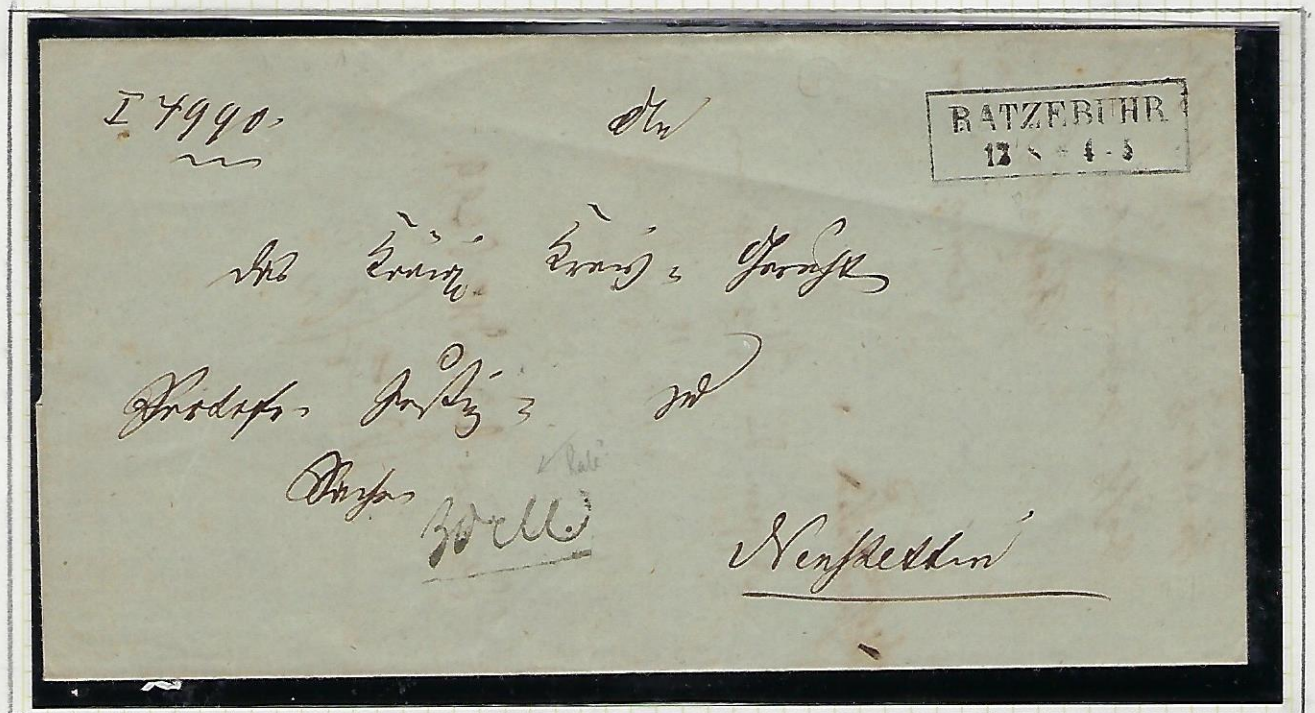 I 4990.
An
RATZEBUHR
12 8 * 4-5
das Königl. Kreis- Gericht
Portofr. Justiz- zu
Sache
Neustettin